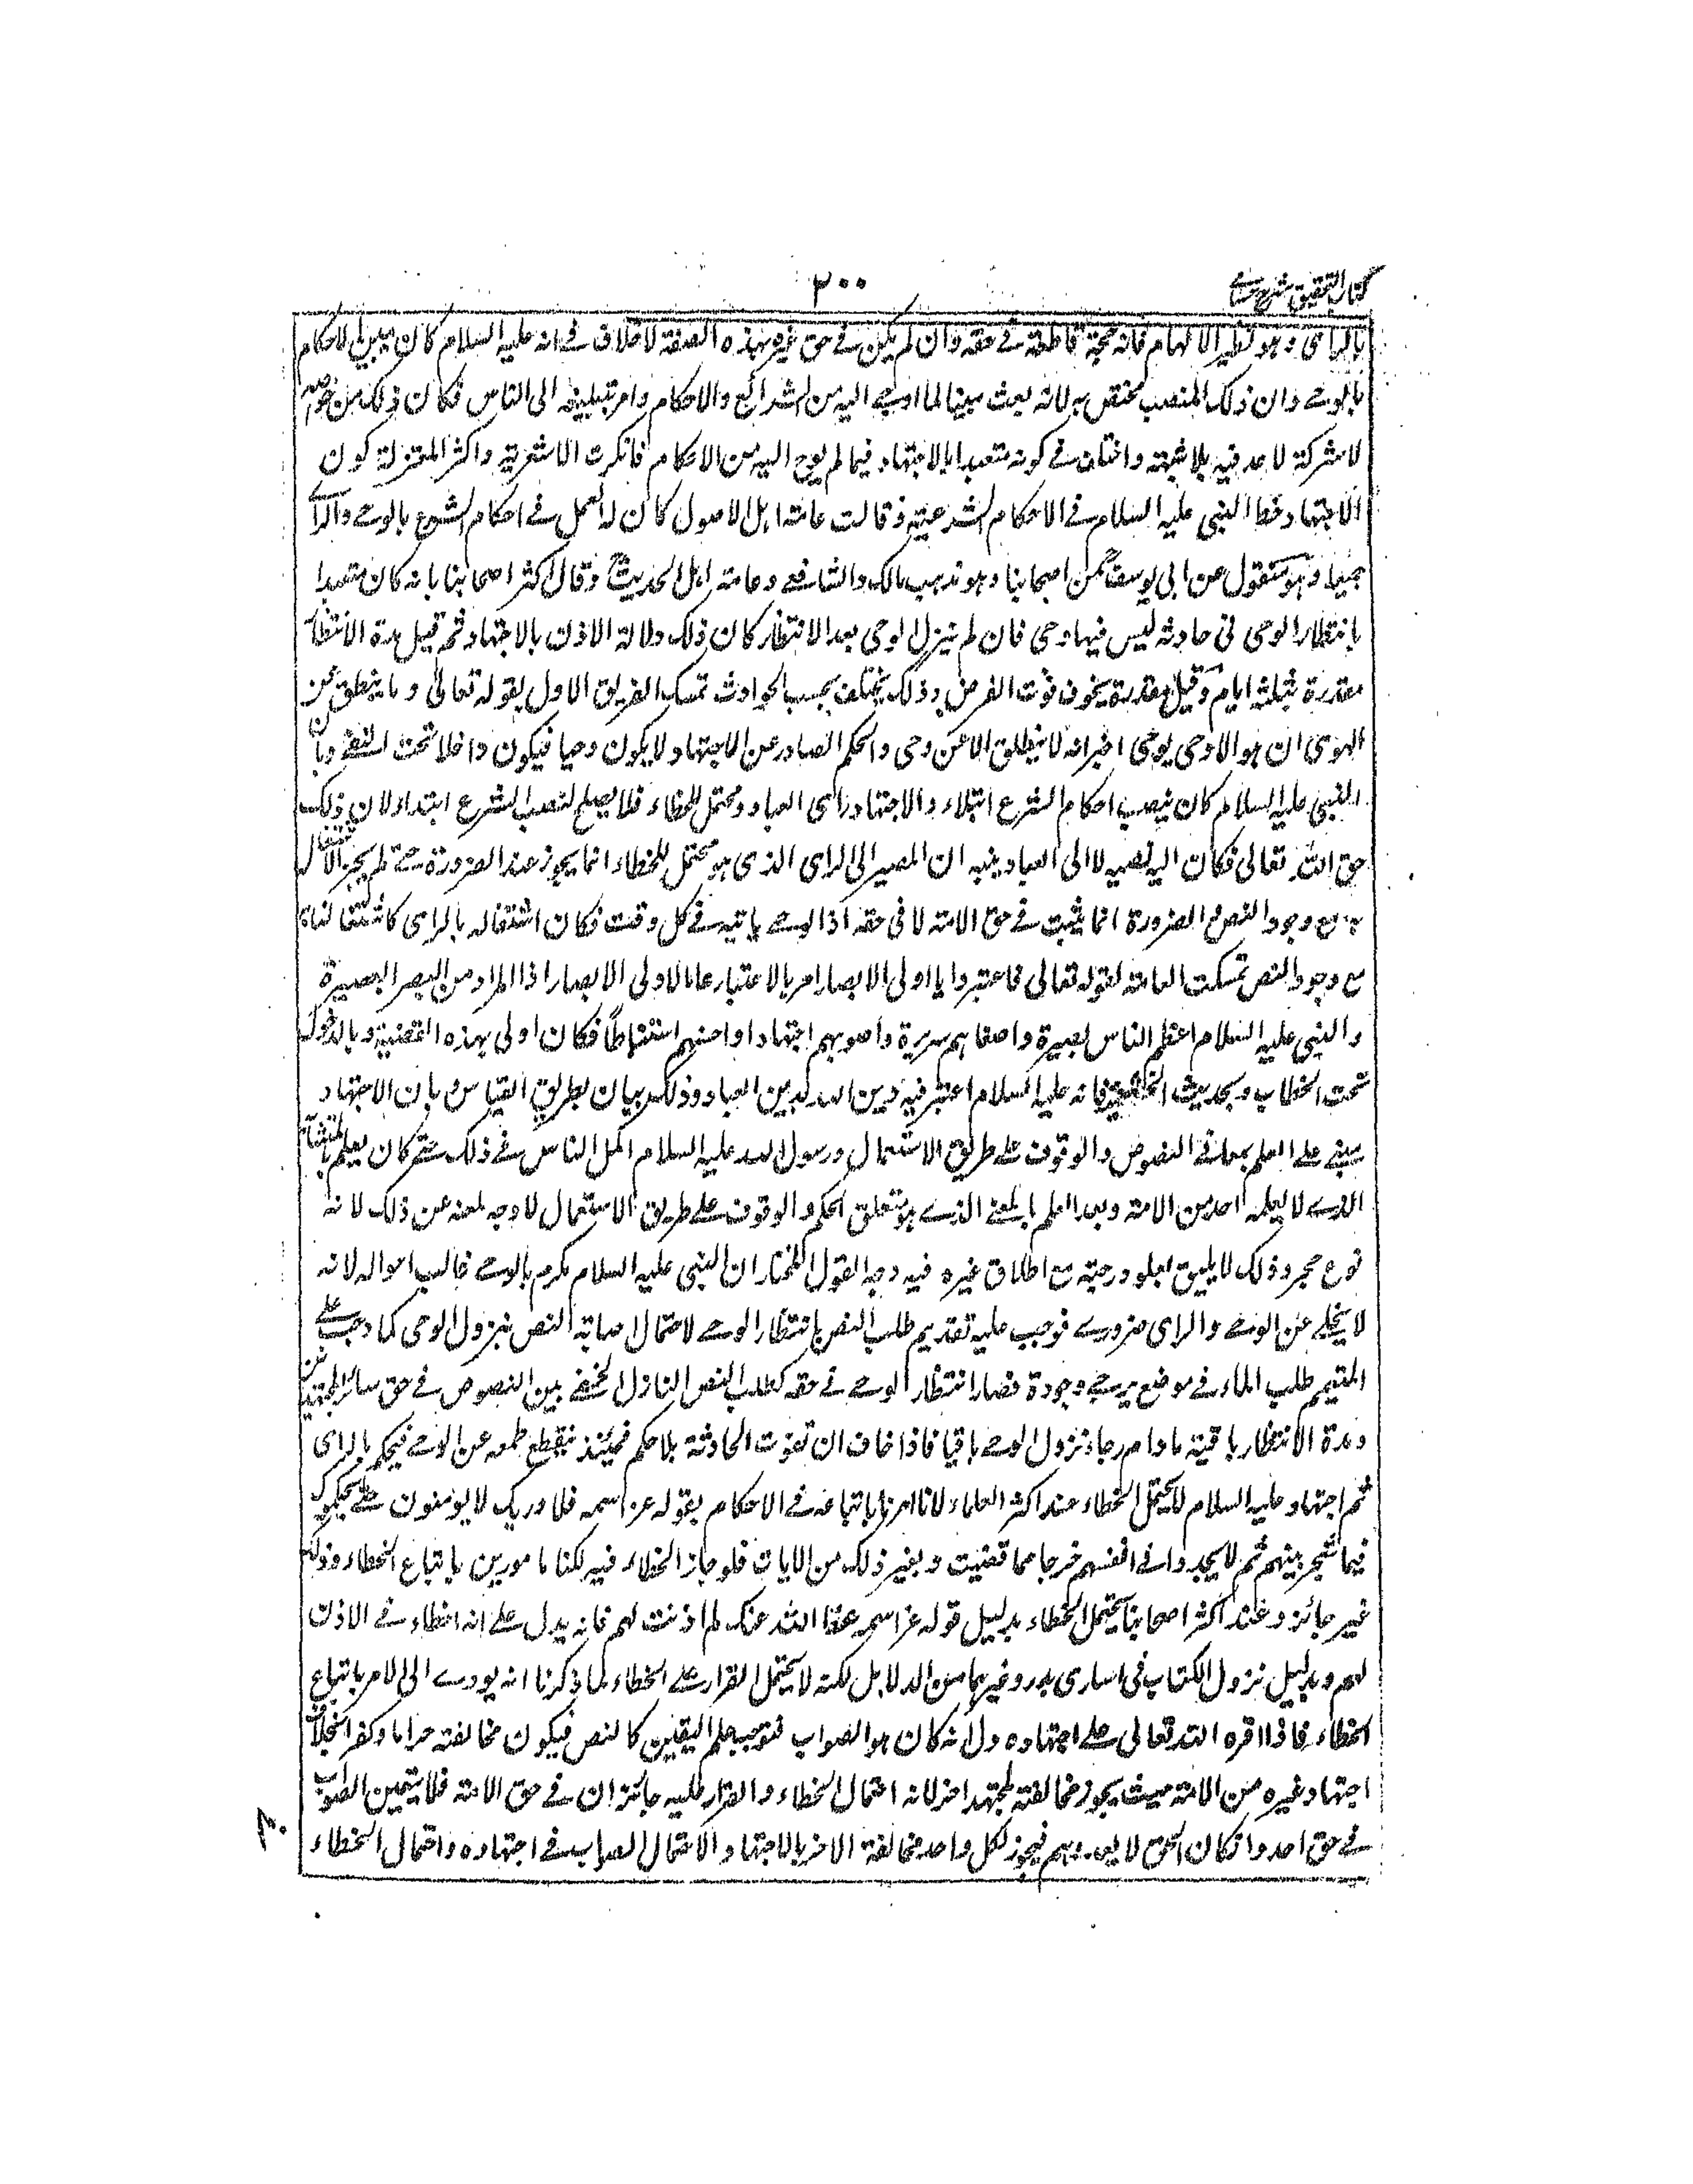 كتاب التحقيق شرح حسامي
٣٠٠
بالراى وهو نظير الالهام فانه حجة قاطعة فى حقه وان لم يكن فى حق غيره بهذه الصفة لا خلاف فى انه عليه السلام كان يبين الاحكام
بالوحى وان ذلك المنصب مختص به لانه بعث مبينا لما اوحى اليه من الشرائع والاحكام وامر بتبليغه الى الناس فكان ذلك من خواصه
لا شركة لاحد فيه بلا شبهة واختلف فى كونه متعبدا بالاجتهاد فيما لم يوح اليه من الاحكام فانكرت الاشعرية واكثر المعتزلة كون
الاجتهاد حظ النبى عليه السلام فى الاحكام الشرعية وقالت عامة اهل الاصول كان له العمل فى احكام الشرع بالوحى والراى
جميعا وهو منقول عن ابى يوسف من اصحابنا وهو مذهب مالك والشافعى وعامة اهل الحديث وقال اكثر اصحابنا بانه كان متعبدا
بانتظار الوحى فى حادثة ليس فيها وحى فان لم ينزل الوحى بعد الانتظار كان ذلك دلالة الاذن بالاجتهاد ثم قيل مدة الانتظار
مقدرة بثلثة ايام وقيل مقدرة بخوف فوت الغرض وذلك يختلف بحسب الحوادث تمسك الفريق الاول بقوله تعالى وما ينطق عن
الهوى ان هو الا وحى يوحى اخبر انه لا ينطق الا عن وحى والحكم الصادر عن الاجتهاد لا يكون وحيا فيكون داخلا تحت النفى وبان
النبى عليه السلام كان ينصب احكام الشرع ابتداء والاجتهاد راى العباد ومحتمل للخطاء فلا يصلح لنصب الشرع ابتداء لان ذلك
حق الله تعالى فكان اليه نصبه لا الى العباد يبينه ان المصير الى الراى الذى هو محتمل للخطاء انما يجوز عند الضرورة حتى لم يجز الاشتغال
به مع وجود النص والضرورة انما تثبت فى حق الامة لا فى حقه اذ الوحى ياتيه فى كل وقت فكان اشتغاله بالراى كاشتغالنا به
مع وجود النص تمسكت العامة لقوله تعالى فاعتبروا يا اولى الابصار امر بالاعتبار عاما لاولى الابصار اذ المراد من البصر البصيرة
والنبى عليه السلام اعظم الناس بصيرة واصفاهم سريرة واصوبهم اجتهادا واحسنهم استنباطا فكان اولى بهذه القضية وبالدخول
تحت الخطاب وبحديث الخثعمية فانه عليه السلام اعتبر فيه دين الله بدين العباد وذلك بيان بطريق القياس وبان الاجتهاد
يبنى على العلم بمعانى النصوص والوقوف على طريق الاستعمال ورسول الله عليه السلام اكمل الناس فى ذلك حتى كان يعلم بالمتشابه
الذى لا يعلمه احد من الامة وبعد العلم بالمعنى الذى هو متعلق الحكم والوقوف على طريق الاستعمال لا وجه لمنعه عن ذلك لانه
نوع حجر وذلك لا يليق بعلو درجته مع اطلاق غيره فيه وجه القول المختار ان النبى عليه السلام مكرم بالوحى غالب احواله لانه
لا يخلى عن الوحى والراى ضرورى فوجب عليه تقديم طلب النص بانتظار الوحى لاحتمال اصابة النص بنزول الوحى كما وجب على
المتيمم طلب الماء فى موضع يرجى وجوده فصار انتظار الوحى فى حقه كطلب النص النازل الخفى بين النصوص فى حق سائر المجتهدين
ومدة الانتظار باقية ما دام رجاء نزول الوحى باقيا فاذا خاف ان تفوت الحادثة بلا حكم فحينئذ ينقطع طمعه عن الوحى فيحكم بالراى
ثم اجتهاده عليه السلام لا يحتمل الخطاء عند اكثر العلماء لانا امرنا باتباعه فى الاحكام بقوله عز اسمه فلا وربك لا يومنون حتى يحكموك
فيما شجر بينهم ثم لا يجدوا فى انفسهم حرجا مما قضيت وبغير ذلك من الايات فلو جاز الخطاء فيه لكنا مامورين باتباع الخطاء وذلك
غير جائز وعند اكثر اصحابنا يحتمل الخطاء بدليل قوله عز اسمه عفا الله عنك لم اذنت لهم فانه يدل على انه اخطاء فى الاذن
لهم وبدليل نزول الكتاب فى اسارى بدر وغيرهما من الدلائل لكنه لا يحتمل القرار على الخطاء لما ذكرنا انه يودى الى الامر باتباع
الخطاء فاذا اقره الله تعالى على اجتهاده دل انه كان هو الصواب فتوجب علم اليقين كالنص فيكون مخالفته حراما وكفرا بخلاف
اجتهاد غيره من الامة حيث يجوز مخالفته لمجتهد اخر لانه احتمال الخطاء والقرار عليه جائزان فى حق الامة فلا يتعين الصواب
فى حق احد وان كان الحق لا فيجوز لكل واحد مخالفة الاخر بالاجتهاد لاحتمال الصواب فى اجتهاده واحتمال الخطاء